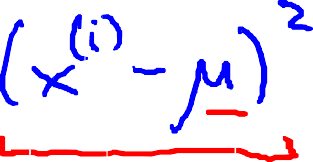 (x^{(i)} - μ)^2